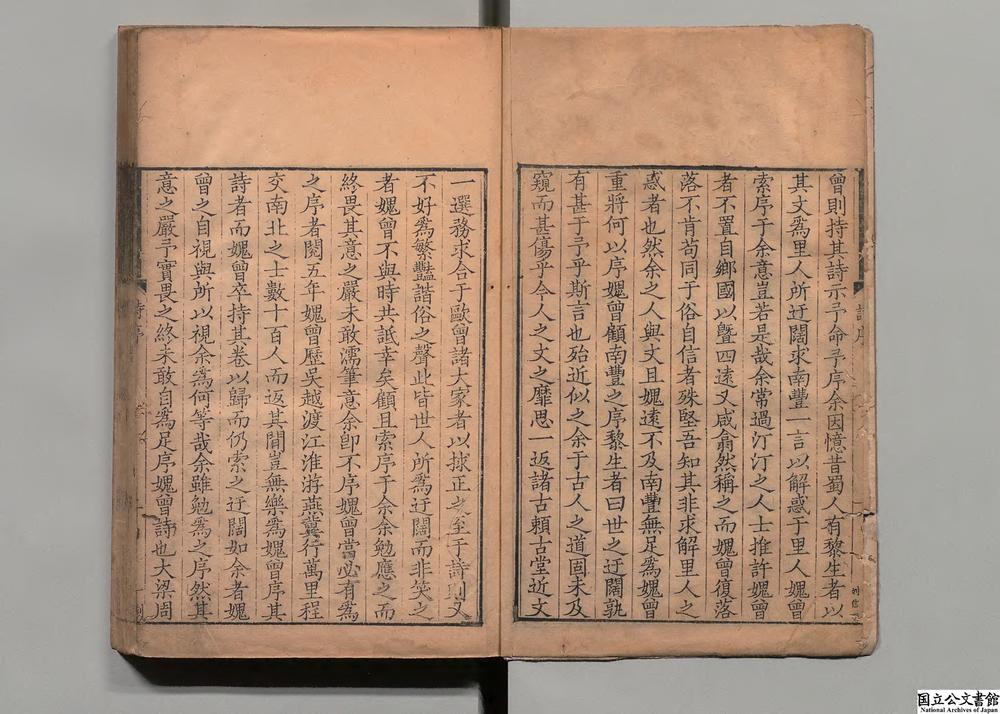 曾則持其詩示予命予序余因憶昔蜀人有黎生者以
其文爲里人所迂闊求南豐一言以解惑于里人媿曾
索序于余意豈若是哉余常過汀汀之人士推許媿曾
者不置自鄉國以曁四遠又咸翕然稱之而媿曾復落
落不肯苟同于俗自信者殊堅吾知其非求解里人之
惑者也然余之人與文且媿遠不及南豐無足爲媿曾
重將何以序媿曾顧南豐之序黎生者曰世之迂闊孰
有甚于予乎斯言也殆近似之余于古人之道固未及
窺而甚傷乎今人之文之靡思一返諸古賴古堂近文
一選務求合于歐曾諸大家者以捄正之至于詩則又
不好爲繁豔諧俗之聲此皆世人所爲迂闊而非笑之
者媿曾不與時共詆幸矣顧且索序于余余勉應之而
終畏其意之嚴未敢濡筆意余卽不序媿曾當必有爲
之序者閱五年媿曾歷吳越渡江淮游燕冀行萬里程
交南北之士數十百人而返其閒豈無樂爲媿曾序其
詩者而媿曾卒持其卷以歸而仍索之迂闊如余者媿
曾之自視與所以視余爲何等哉余雖勉爲之序然其
意之嚴予實畏之終未敢自爲足序媿曾詩也大梁周
詩序
国立公文書館
National Archives of Japan